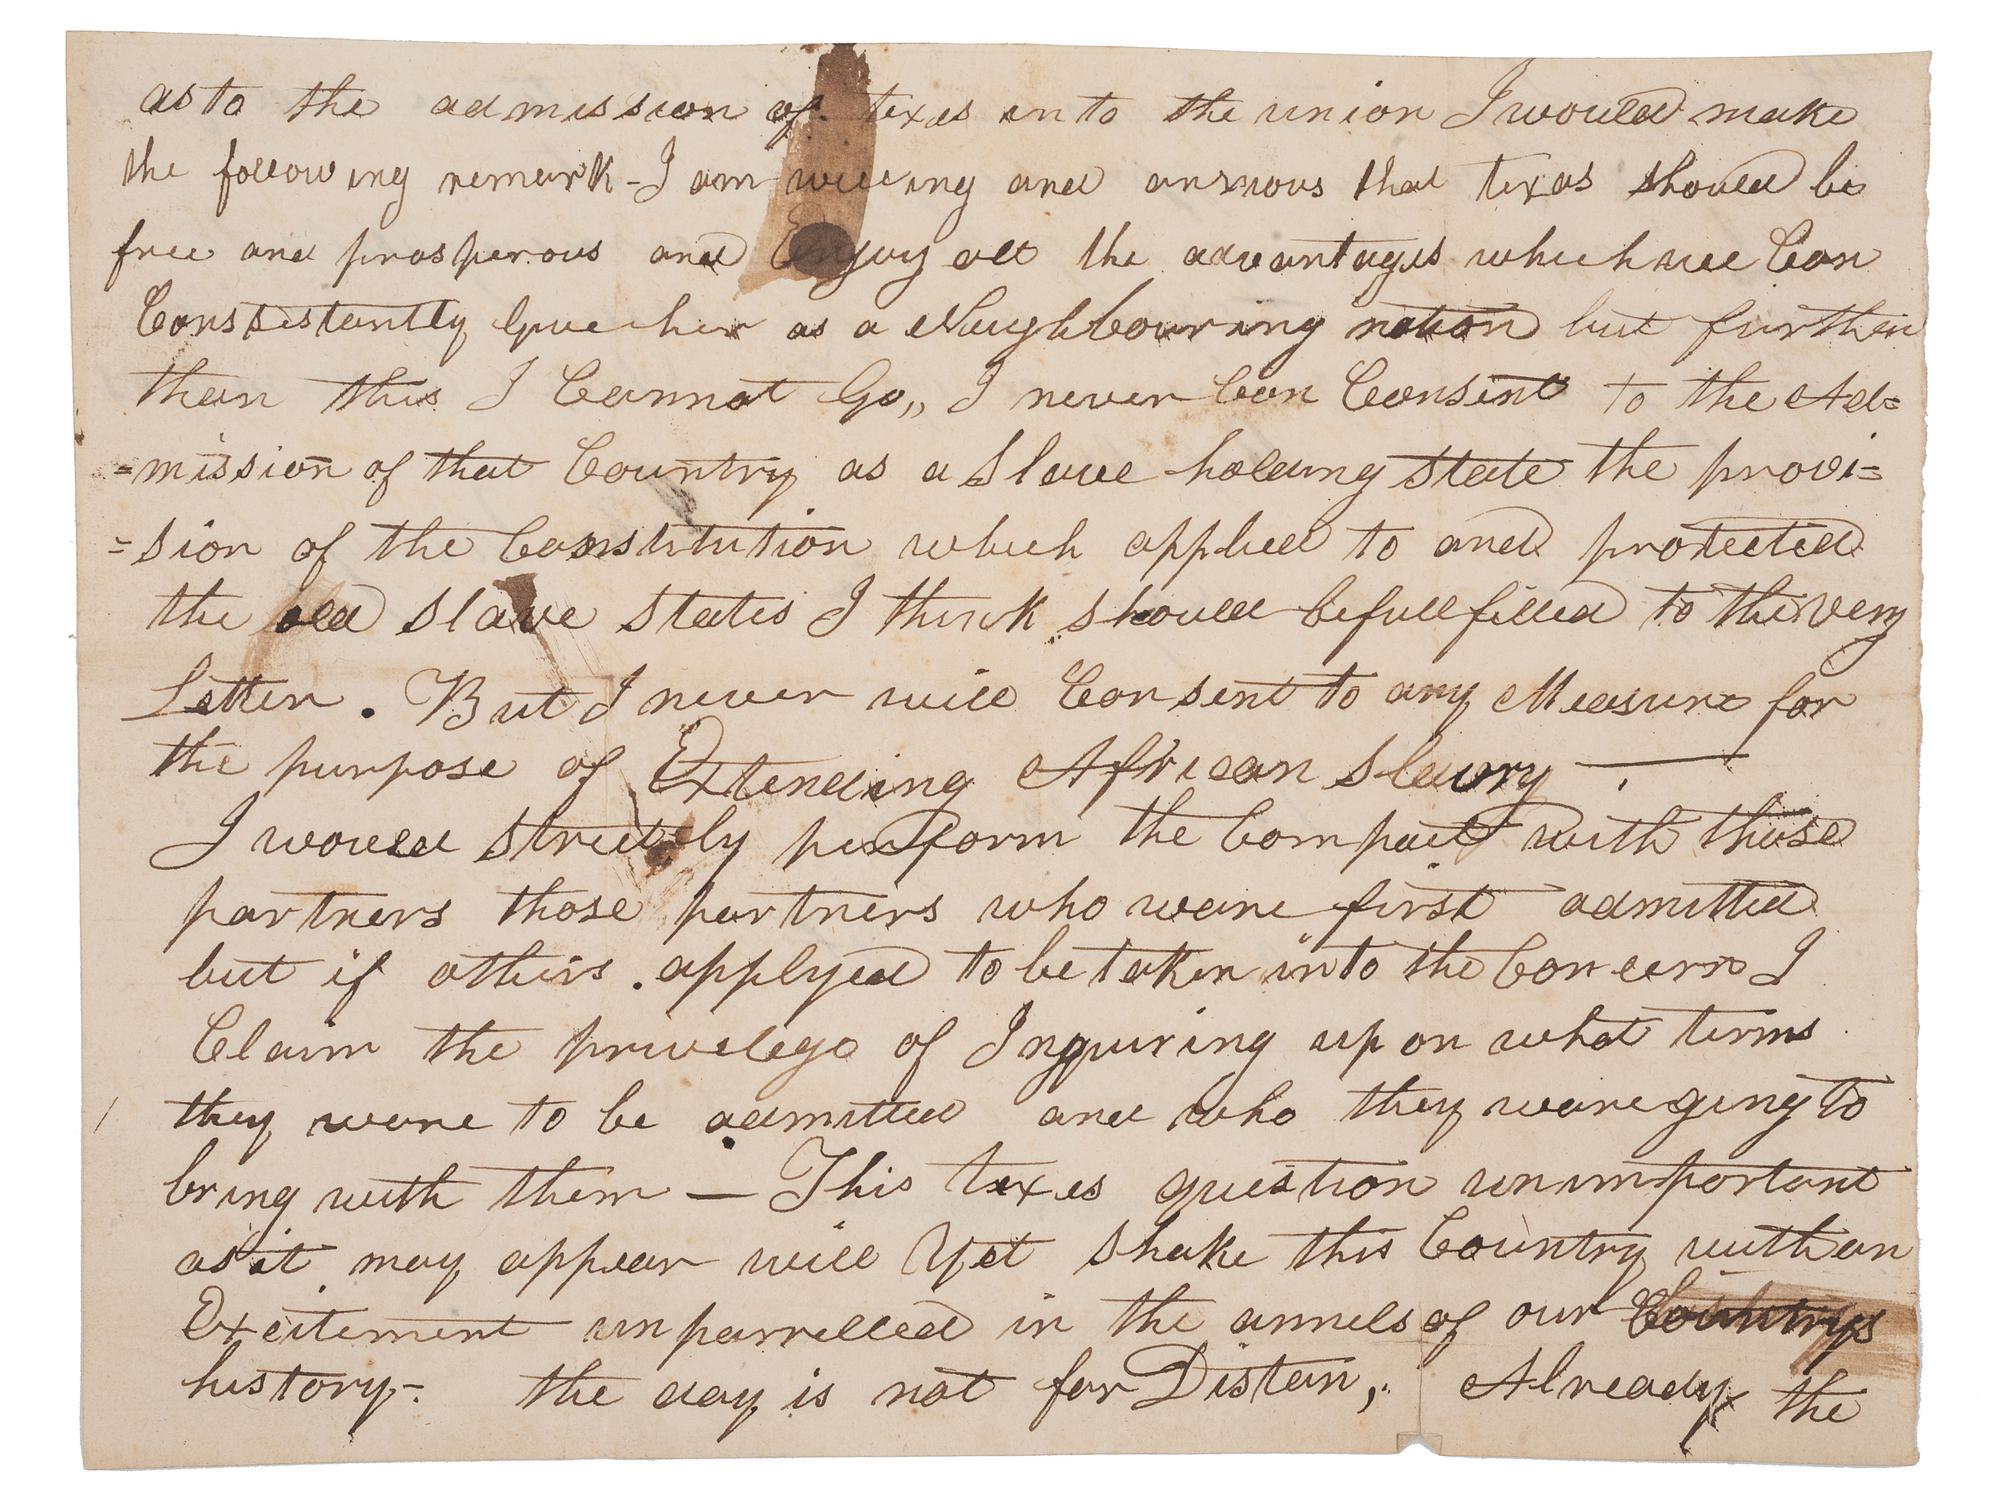 as to the admission of texas into the union I would make
the following remark - I am willing and anxious that texas should be
free and prosperous and Enjoy all the advantages which we Can
Consistantly Give her as a Neighbouring nation but further
than this I Cannot Go,, I never Can Consent to the Ad=
=mission of that Country as a Slave holding state the provi=
=sion of the Constitution which applied to and protected
the old slave states I think should be fullfilled to the very
Letter. But I never will Consent to any Measure for
the purpose of Extending African Slavry —
I would strictly perform the Compact with those
partners those partners who ware first admitted
but if others applyed to be taken into the Concern I
Claim the privelege of Inquiring up on what terms
they ware to be admitted and who they ware ging to
bring with them — This texas question unimportant
as it may appear will Yet shake this Country with an
Excitement unparrelled in the annels of our Countrys
history - the day is not far Distan, Already the